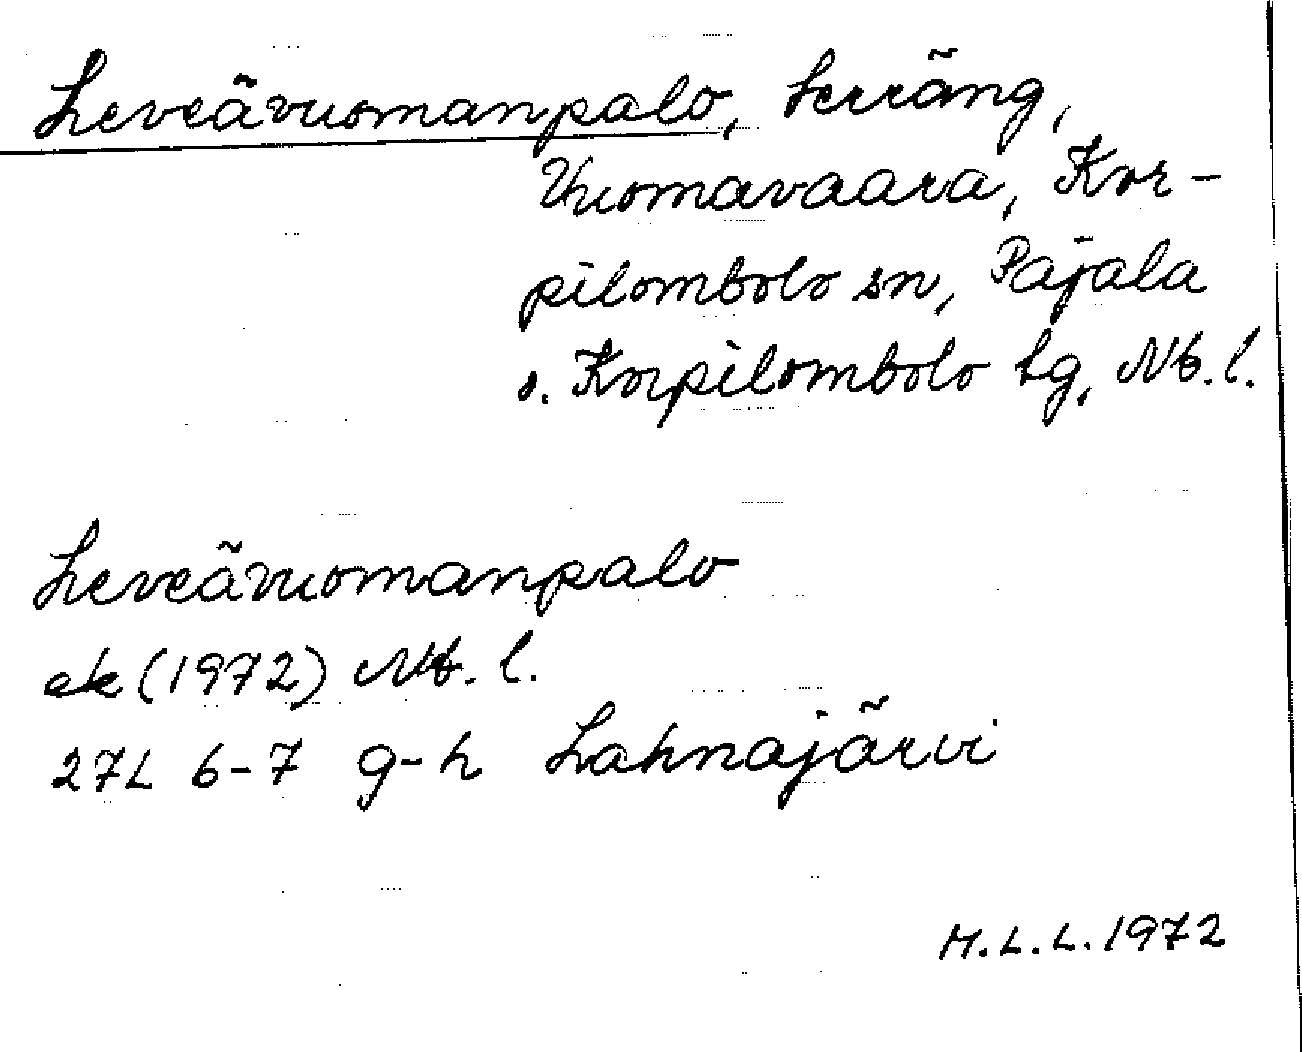 Leveävuomanpalo, terräng,
Vuomavaara, Kor-
pilombolo sn, Pajala
o. Korpilombolo tg, Nb. l.
Leveävuomanpalo
ek (1972) Nb. l.
27L 6-7 g-h Lahnajärvi
M.L.L. 1972